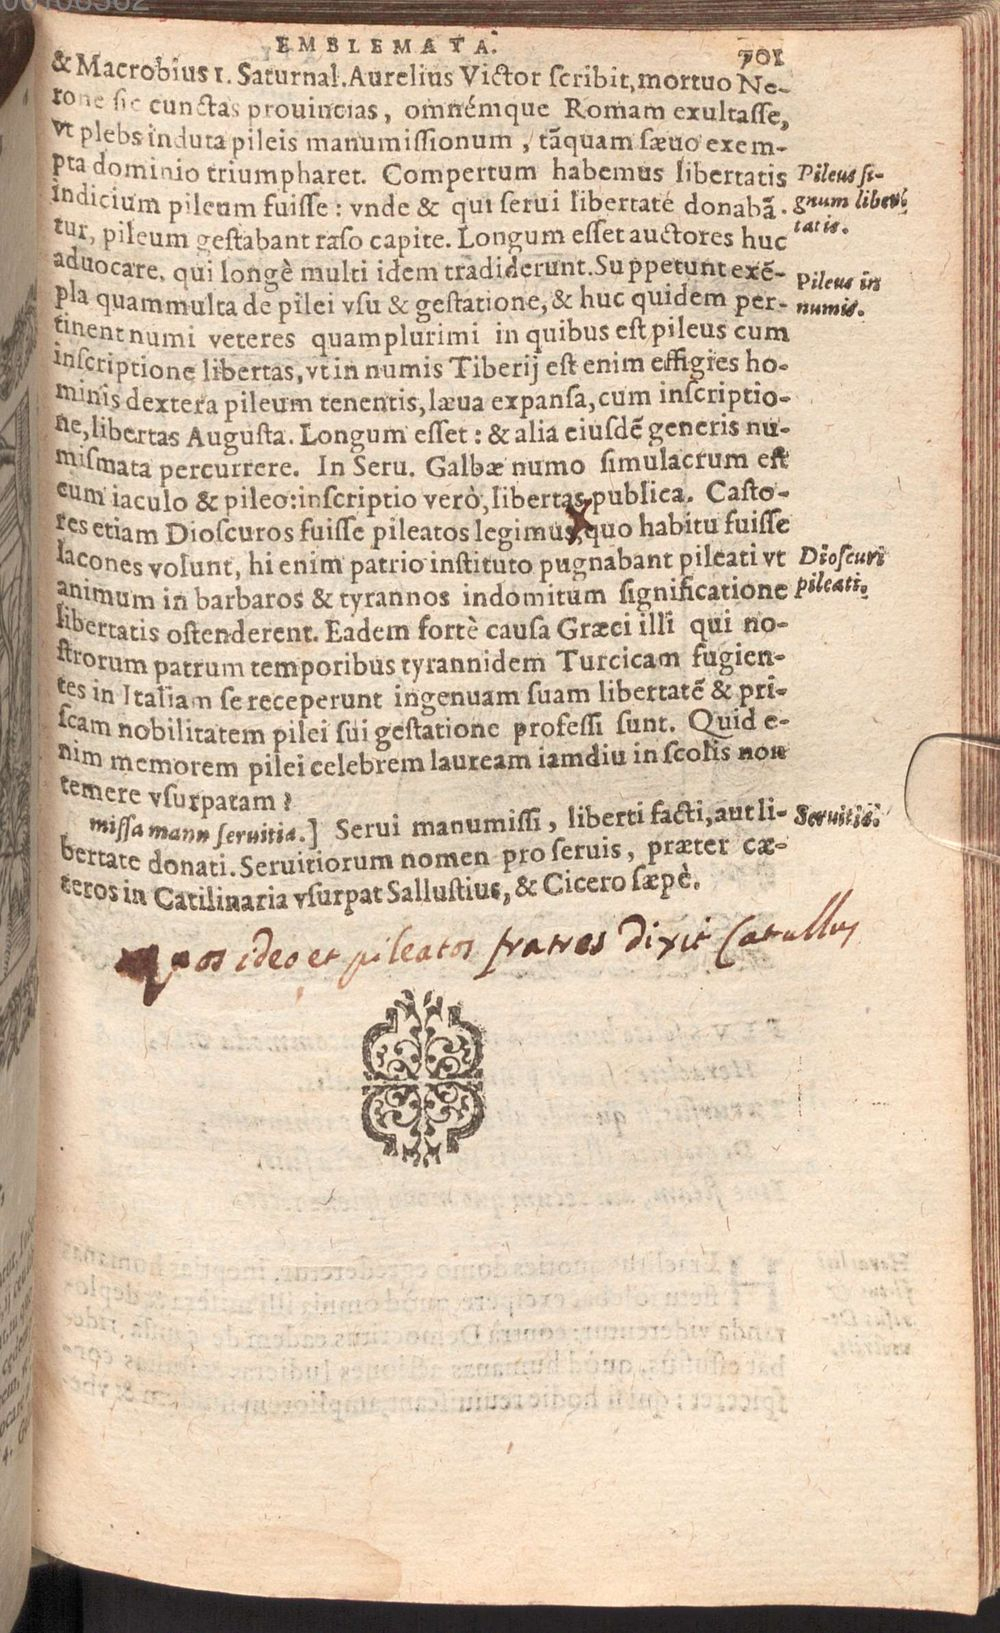 EMBLEMATA. 701
& Macrobius 1. Saturnal. Aurelius Victor ſcribit, mortuo Ne-
rone ſic cunctas prouincias, omnémque Romam exultaſſe,
vt plebs induta pileis manumiſſionum, tãquam ſæuo exem-
pta dominio triumpharet. Compertum habemus libertatis
indicium pileum fuiſſe: vnde & qui ſerui libertate donabã-
tur, pileum geſtabant raſo capite. Longum eſſet auctores huc
aduocare, qui longè multi idem tradiderunt. Suppetunt exẽ-
pla quammulta de pilei vſu & geſtatione, & huc quidem per-
tinent numi veteres quamplurimi in quibus eſt pileus cum
inſcriptione libertas, vt in numis Tiberij eſt enim effigies ho-
minis dextera pileum tenentis, læua expanſa, cum inſcriptio-
ne, libertas Auguſta. Longum eſſet: & alia eiuſdẽ generis nu-
miſmata percurrere. In Seru. Galbæ numo ſimulacrum eſt
cum iaculo & pileo: inſcriptio verò, libertas publica. Caſto-
res etiam Dioſcuros fuiſſe pileatos legimus, quo habitu fuiſſe
Lacones volunt, hi enim patrio inſtituto pugnabant pileati vt
animum in barbaros & tyrannos indomitum ſignificatione
libertatis oſtenderent. Eadem fortè cauſa Græci illi qui no-
ſtrorum patrum temporibus tyrannidem Turcicam fugien-
tes in Italiam ſe receperunt ingenuam ſuam libertatẽ & pri-
ſcam nobilitatem pilei ſui geſtatione profeſſi ſunt. Quid e-
nim memorem pilei celebrem lauream iamdiu in ſcolis non
temere vſurpatam?
miſſa manu ſeruitia.] Serui manumiſſi, liberti facti, aut li-
bertate donati. Seruitiorum nomen pro ſeruis, præter cæ-
teros in Catilinaria vſurpat Salluſtius, & Cicero ſæpè.
Pileus ſi-
gnum liber-
tatis.
Pileus in
numis.
Dioſcuri
pileati.
Seruitia.
Quos ideo et pileatos fratres dixit Catullus